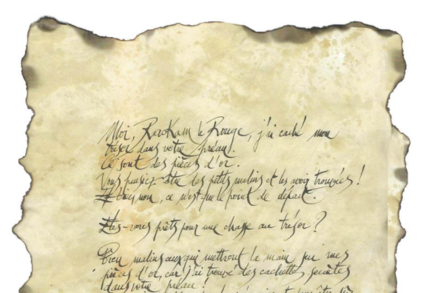 Moi, RackAm le Rouge, j'ai caché mon
trésor dans votre préau!
Ce sont des pièces d'or.
Vous pensiez être des petits malins et les avoir trouvées!
Eh bien non, ce n'est que le point de départ.
Etes-vous prêts pour une chasse au trésor?
Bien malins ceux qui mettront la main sur mes
pièces d'or, car j'ai trouvé des cachettes secrètes
dans votre préau!